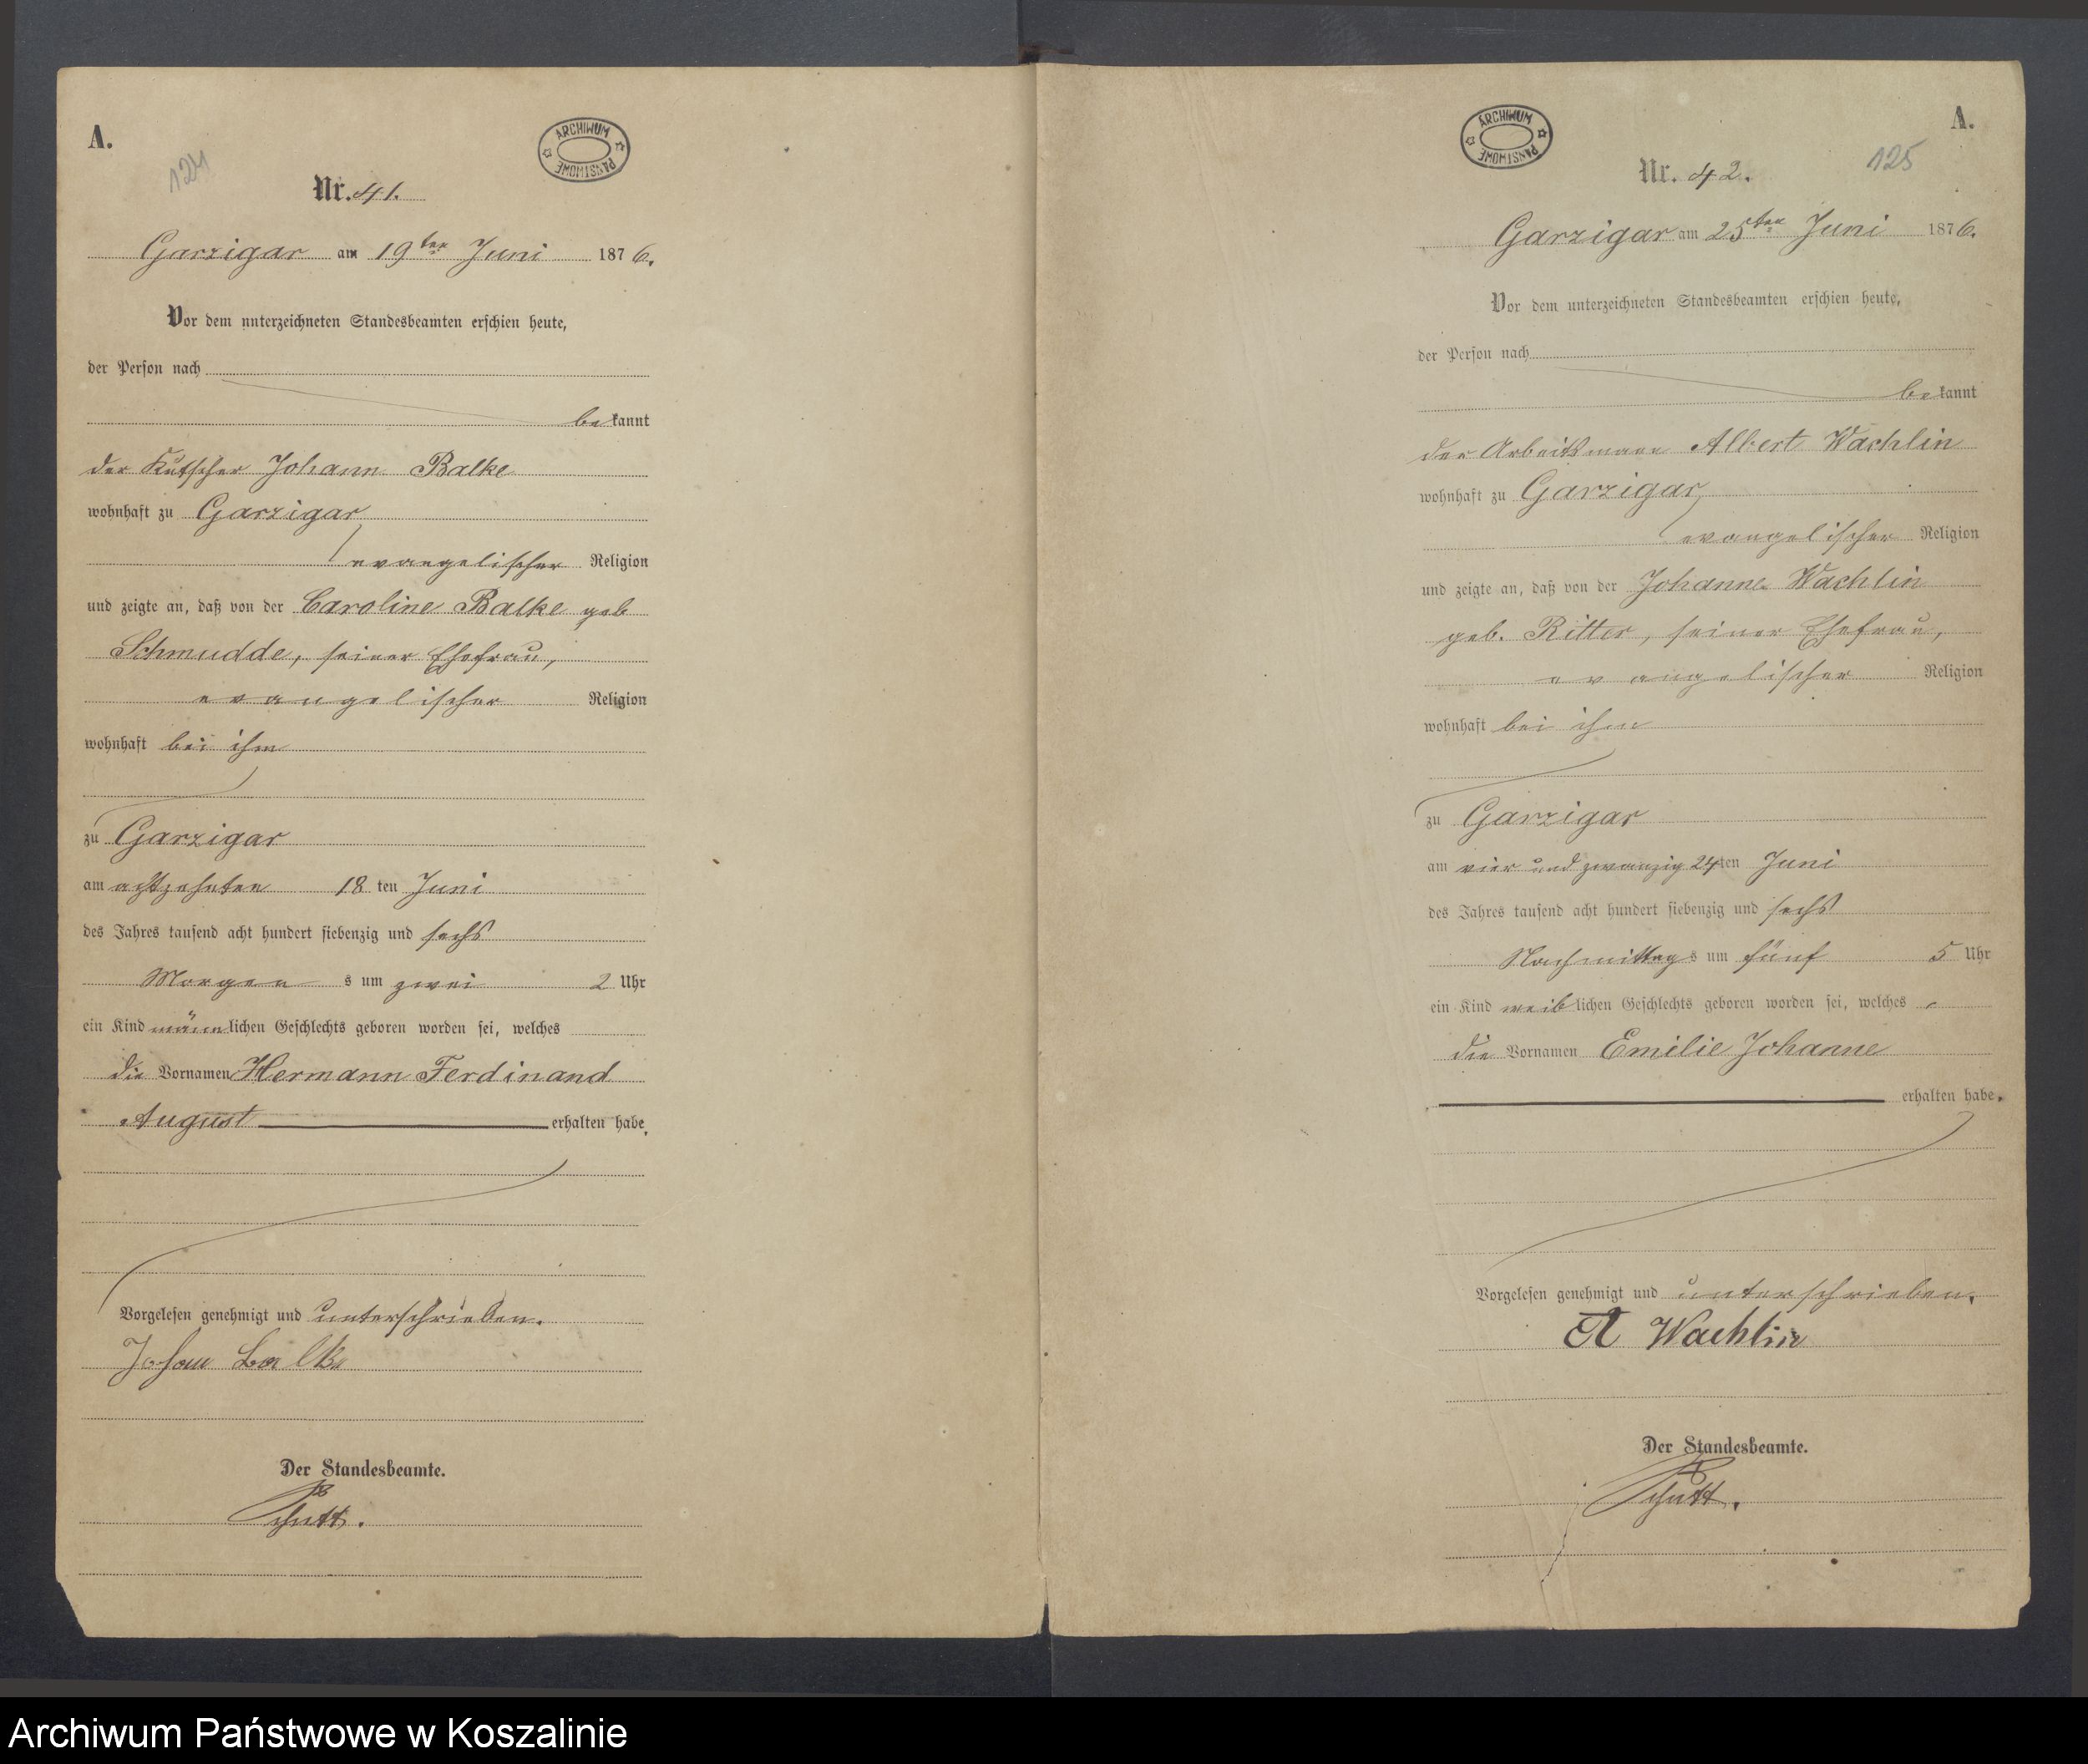 A.
124
ARCHIWUM PAŃSTWOWE
Nr. 41.
Garzigar am 19ten Juni 1876.
Vor dem unterzeichneten Standesbeamten erschien heute,
der Person nach
bekannt
der Kutscher Johann Balke
wohnhaft zu Garzigar,
evangelischer Religion
und zeigte an, daß von der Caroline Balke geb
Schmudde, seiner Ehefrau,
evangelischer Religion
wohnhaft bei ihm
zu Garzigar
am achtzehnten 18 ten Juni
des Jahres tausend acht hundert siebenzig und sechs
Morgens um zwei 2 Uhr
ein Kind männlichen Geschlechts geboren worden sei, welches
die Vornamen Hermann Ferdinand
August erhalten habe.
Vorgelesen genehmigt und unterschrieben.
Johan Balke
Der Standesbeamte.
A.
125
ARCHIWUM PAŃSTWOWE
Nr. 42.
Garzigar am 25ten Juni 1876.
Vor dem unterzeichneten Standesbeamten erschien heute,
der Person nach
bekannt
der Arbeitsmann Albert Wachlin
wohnhaft zu Garzigar,
evangelischer Religion
und zeigte an, daß von der Johanne Wachlin
geb. Ritter, seiner Ehefrau,
evangelischer Religion
wohnhaft bei ihm
zu Garzigar
am vier und zwanzig 24ten Juni
des Jahres tausend acht hundert siebenzig und sechs
Nachmittags um fünf 5 Uhr
ein Kind weiblichen Geschlechts geboren worden sei, welches
die Vornamen Emilie Johanne
erhalten habe.
Vorgelesen genehmigt und unterschrieben.
A Wachlin
Der Standesbeamte.
Archiwum Państwowe w Koszalinie